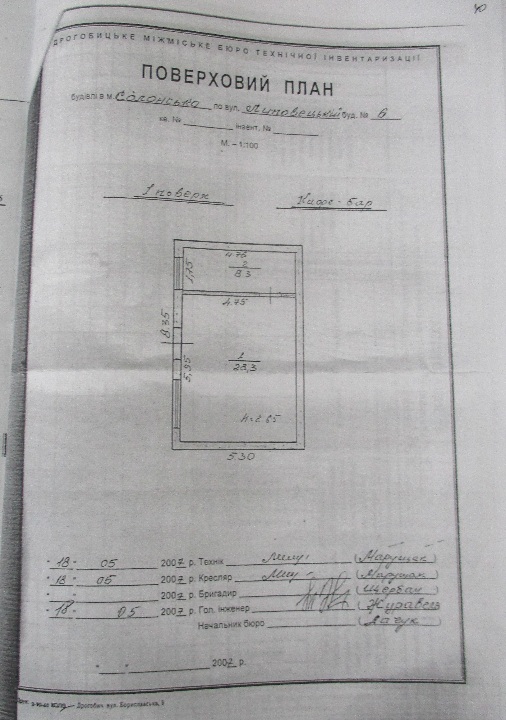 ДРОГОБИЦЬКЕ МІЖМІСЬКЕ БЮРО ТЕХНІЧНОЇ ІНВЕНТАРИЗАЦІЇ
ПОВЕРХОВИЙ ПЛАН
будівлі в м. Солонсько по вул. буд. № 6
кв. № інвент. №
М. – 1:100
1 поверх Кафе-бар
4.75
2
8.3
1,75
4.75
8.35
1
28,3
5,95
h=2.65
5.30
"18" 05 2007 р. Технік
"18" 05 2007 р. Кресляр
" " 2007 р. Бригадир (Щербан)
"18" 05 2007 р. Гол. інженер
Начальник бюро
" " 2007 р.
Дрогобич вул. Бориславська, 3